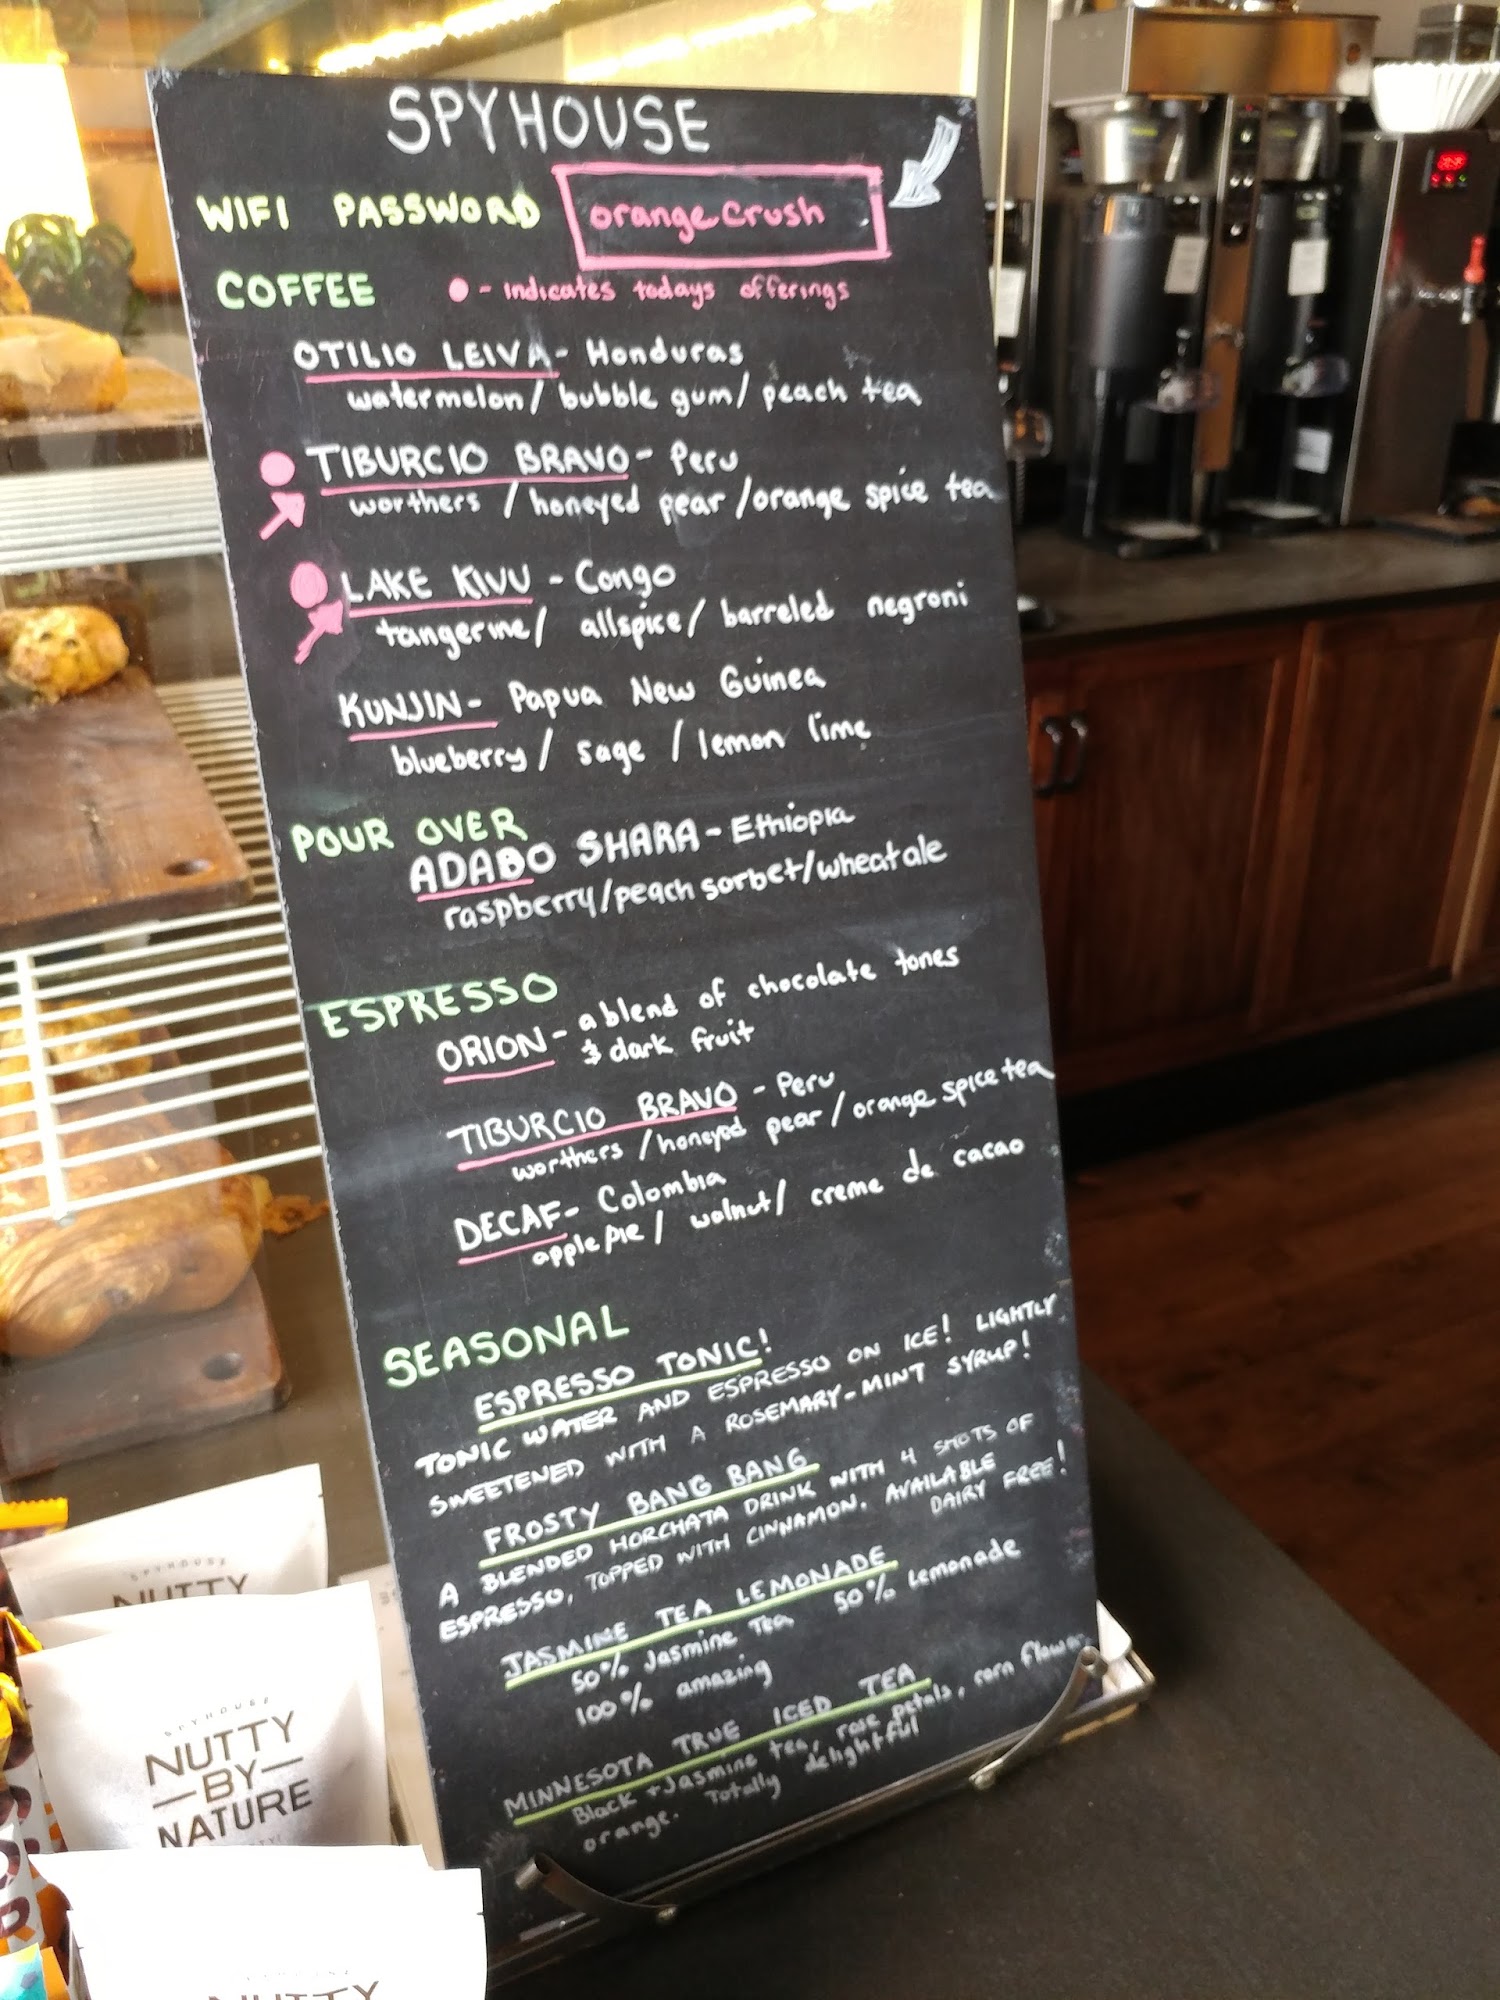 SPYHOUSE
WIFI PASSWORD orangecrush
COFFEE ● - indicates todays offerings
OTILIO LEIVA - Honduras
watermelon / bubble gum / peach tea
TIBURCIO BRAVO - Peru
worthers / honeyed pear / orange spice tea
LAKE KIVU - Congo
tangerine / allspice / barreled negroni
KUNJIN - Papua New Guinea
blueberry / sage / lemon lime
POUR OVER
ADABO SHARA - Ethiopia
raspberry / peach sorbet / wheat ale
ESPRESSO
ORION - a blend of chocolate tones
& dark fruit
TIBURCIO BRAVO - Peru
worthers / honeyed pear / orange spice tea
DECAF - Colombia
apple pie / walnut / creme de cacao
SEASONAL
ESPRESSO TONIC!
TONIC WATER AND ESPRESSO ON ICE! LIGHTLY
SWEETENED WITH A ROSEMARY-MINT SYRUP!
FROSTY BANG BANG
A BLENDED HORCHATA DRINK WITH 4 SHOTS OF
ESPRESSO, TOPPED WITH CINNAMON. AVAILABLE
DAIRY FREE!
JASMINE TEA LEMONADE
50% Jasmine Tea 50% Lemonade
100% amazing
MINNESOTA TRUE ICED TEA
Black + Jasmine tea, rose petals, corn flower
orange. Totally delightful
SPYHOUSE
NUTTY
SPYHOUSE
NUTTY
-BY-
NATURE
NUTTY